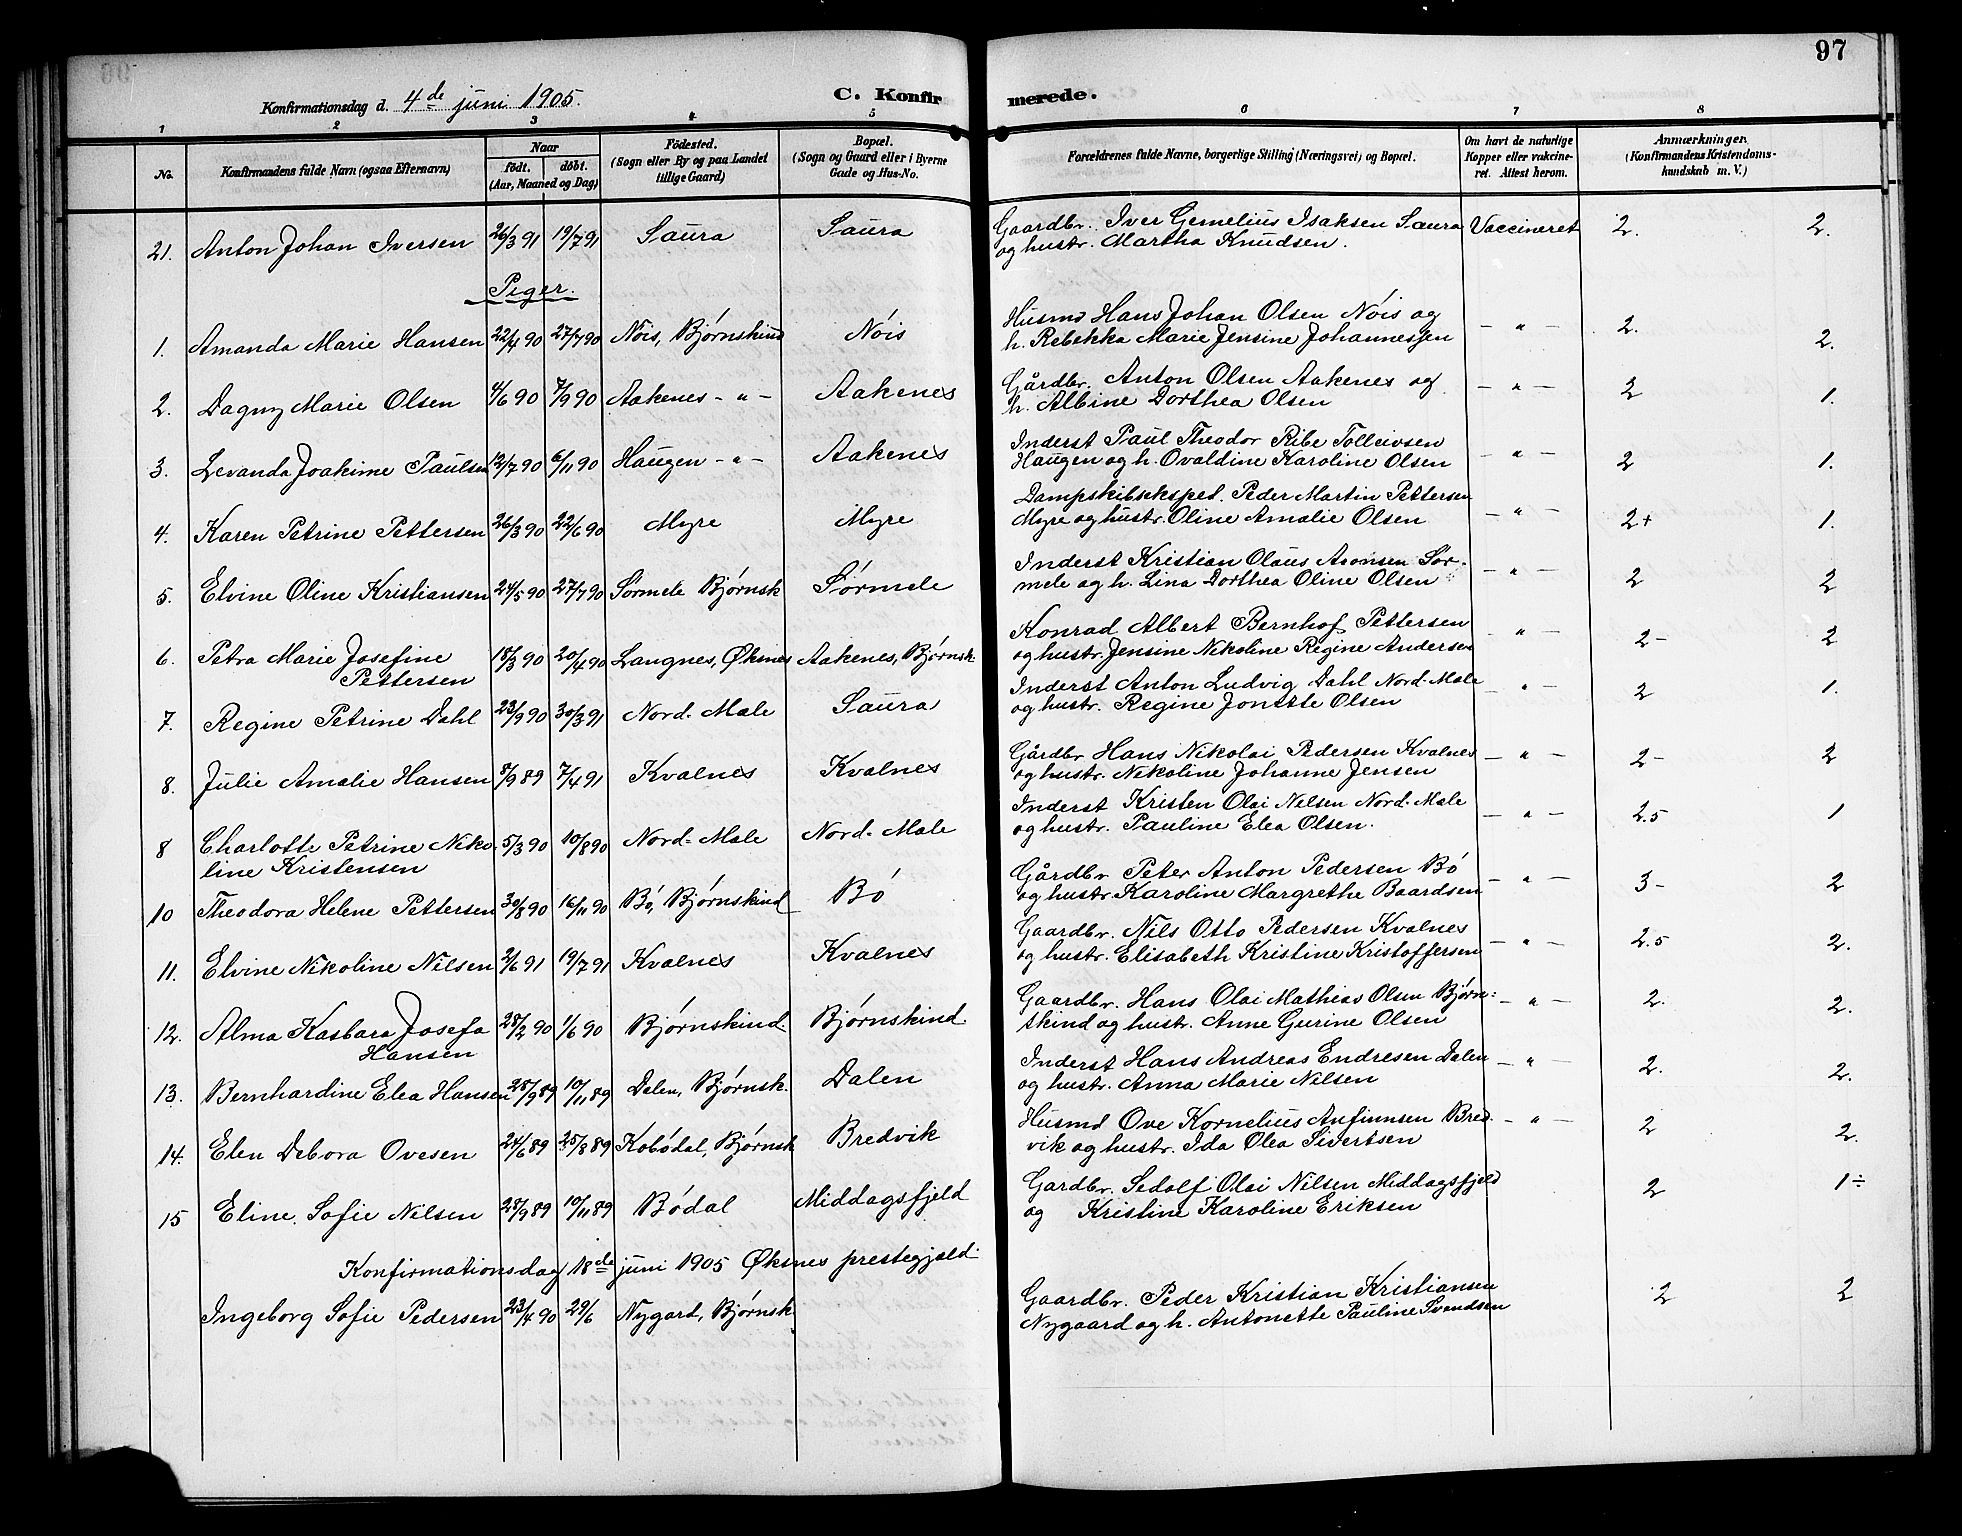 97
Konfirmationsdag d. 4de juni 1905.
C. Konfirmerede.
1 2 3 4 5 6 7 8
No.
Konfirmandens fulde Navn (ogsaa Efternavn)
Naar
født. døbt.
(Aar, Maaned og Dag)
Fødested.
(Sogn eller By og paa Landet
tillige Gaard)
Bopæl.
(Sogn og Gaard eller i Byerne
Gade og Hus-No.
Forældrenes fulde Navne, borgerlige Stilling (Næringsvei) og Bopæl.
Om havt de naturlige
Kopper eller vakcine-
ret. Attest herom.
Anmærkninger.
(Konfirmandens Kristendoms-
kundskab m. V.)
21. Anton Johan Iversen 26/3 91 19/7 91 Saura Saura Gaardbr. Iver Gemelius Isaksen Saura Vaccineret 2. 2.
og hustr. Martha Knudsen.
Piger.
1. Amanda Marie Hansen 22/4 90 27/7 90 Nøis, Bjørnskind Nøis Husmd Hans Johan Olsen Nøis og – " – 2. 2.
h. Rebekka Marie Jensine Johannessen
2. Dagny Marie Olsen 4/6 90 7/9 90 Aakenes – " – Aakenes Gårdbr. Anton Olsen Aakenes og – " – 2 1.
h. Albine Dorthea Olsen
3. Levanda Joakime Paulsen 12/7 90 6/11 90 Haugen – " – Aakenes Inderst Paul Theodor Ribe Tolleivsen – " – 2 1.
Haugen og h. Ovaldine Karoline Olsen
4. Karen Petrine Pettersen 26/3 90 22/6 90 Myre Myre Dampskibseksped. Peder Martin Pettersen – " – 2+ 1.
Myre og hustr. Oline Amalie Olsen
5. Elvine Oline Kristiansen 24/5 90 27/7 90 Sørmele Bjørnsk Sørmele Inderst Kristian Olaus Aronsen Sør- – " – 2 2
mele og h. Lina Dorthea Oline Olsen
6. Petra Marie Josefine 18/3 90 20/4 90 Langnes, Øksnes Aakenes, Bjørnsk. Konrad Albert Bernhof Pettersen " – 2– 2
Pettersen og hustr. Jensine Nikoline Regine Andersen
7. Regine Petrine Dahl 23/9 90 30/3 91 Nord-Male Saura Inderst Anton Ludvig Dahl Nord-Male – " – 2 1.
og hustr. Regine Jonette Olsen
8. Julie Amalie Hansen 8/9 89 7/4 91 Kvalnes Kvalnes Gårdbr Hans Nikolai Pedersen Kvalnes – " – 2– 2
og hustr. Nikoline Johanne Jensen
8 Charlotte Petrine Niko- 5/3 90 10/8 90 Nord-Male Nord-Male Inderst Kristen Olai Nilsen Nord-Male – " – 2.5 1
line Kristensen og hustr. Pauline Elea Olsen.
10 Theodora Helene Pettersen 30/8 90 16/11 90 Bø, Bjørnskind Bø Gårdbr Peter Anton Pedersen Bø – " – 3– 2
og hustr Karoline Margrethe Baardsen
11. Elvine Nikoline Nilsen 2/6 91 19/7 91 Kvalnes Kvalnes Gaardbr. Nils Otto Pedersen Kvalnes – " – 2.5 2.
og hustr. Elisabeth Kristine Kristoffersen
12. Alma Kasbara Josefa 28/2 90 1/6 90 Bjørnskind. Bjørnskind. Gaardbr. Hans Olai Mathias Olsen Bjørn- – " – 2. 2.
Hansen skind og hustr. Anne Gurine Olsen
13. Bernhardine Elea Hansen 28/9 89 10/11 89 Dalen, Bjørnsk. Dalen Inderst Hans Andreas Endresen Dalen – " – 2. 2.
og hustr. Anna Marie Nilsen
14. Elen Debora Ovesen 24/6 89 25/8 89 Kobødal, Bjørnsk Bredvik Husmd Ove Kornelius Anfinnsen Bred- – " – 2 2.
vik og hustr. Ida Olea Sivertsen
15 Eline Sofie Nilsen 28/9 89 10/11 89 Bødal Middagsfjeld Gardbr. Sedolf Olai Nilsen Middagsfjeld 2 1÷
og Kristine Karoline Eriksen
Konfirmationsdag 18de juni 1905 Øksnes prestegjeld.
Ingeborg Sofie Pedersen 23/4 90 29/6 Nygard, Bjørnsk Gaardbr. Peder Kristian Kristiansen 2 2
Nygaard og h. Antonette Pauline Svendsen